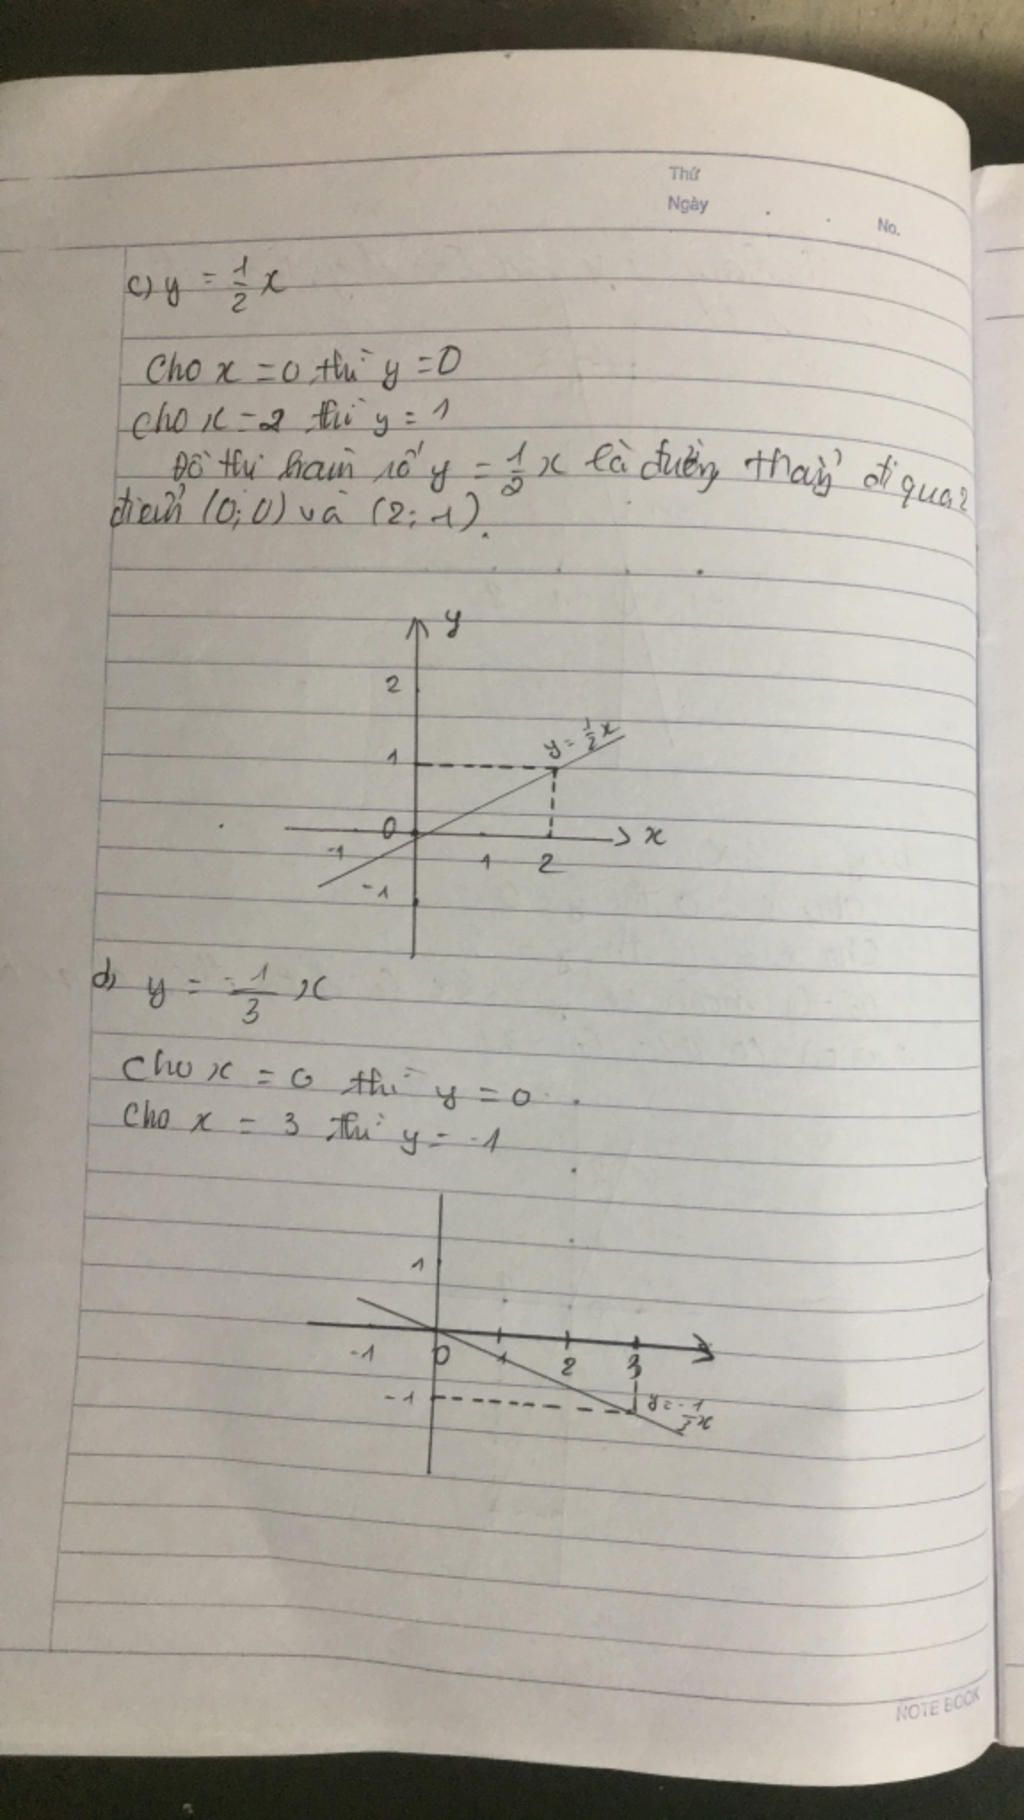 Thứ
Ngày . .
No.
c) y = 1/2 x
Cho x = 0 thì y = 0
cho x = 2 thì y = 1
Đồ thị hàm số y = 1/2 x là đường thẳng đi qua 2
điểm (0; 0) và (2; 1).
y
2
y = 1/2 x
1
0
x
-1
1
2
-1
d) y = -1/3 x
Cho x = 0 thì y = 0
Cho x = 3 thì y = -1
1
-1
0
1
2
3
-1
y = -1/3 x
NOTE BOOK